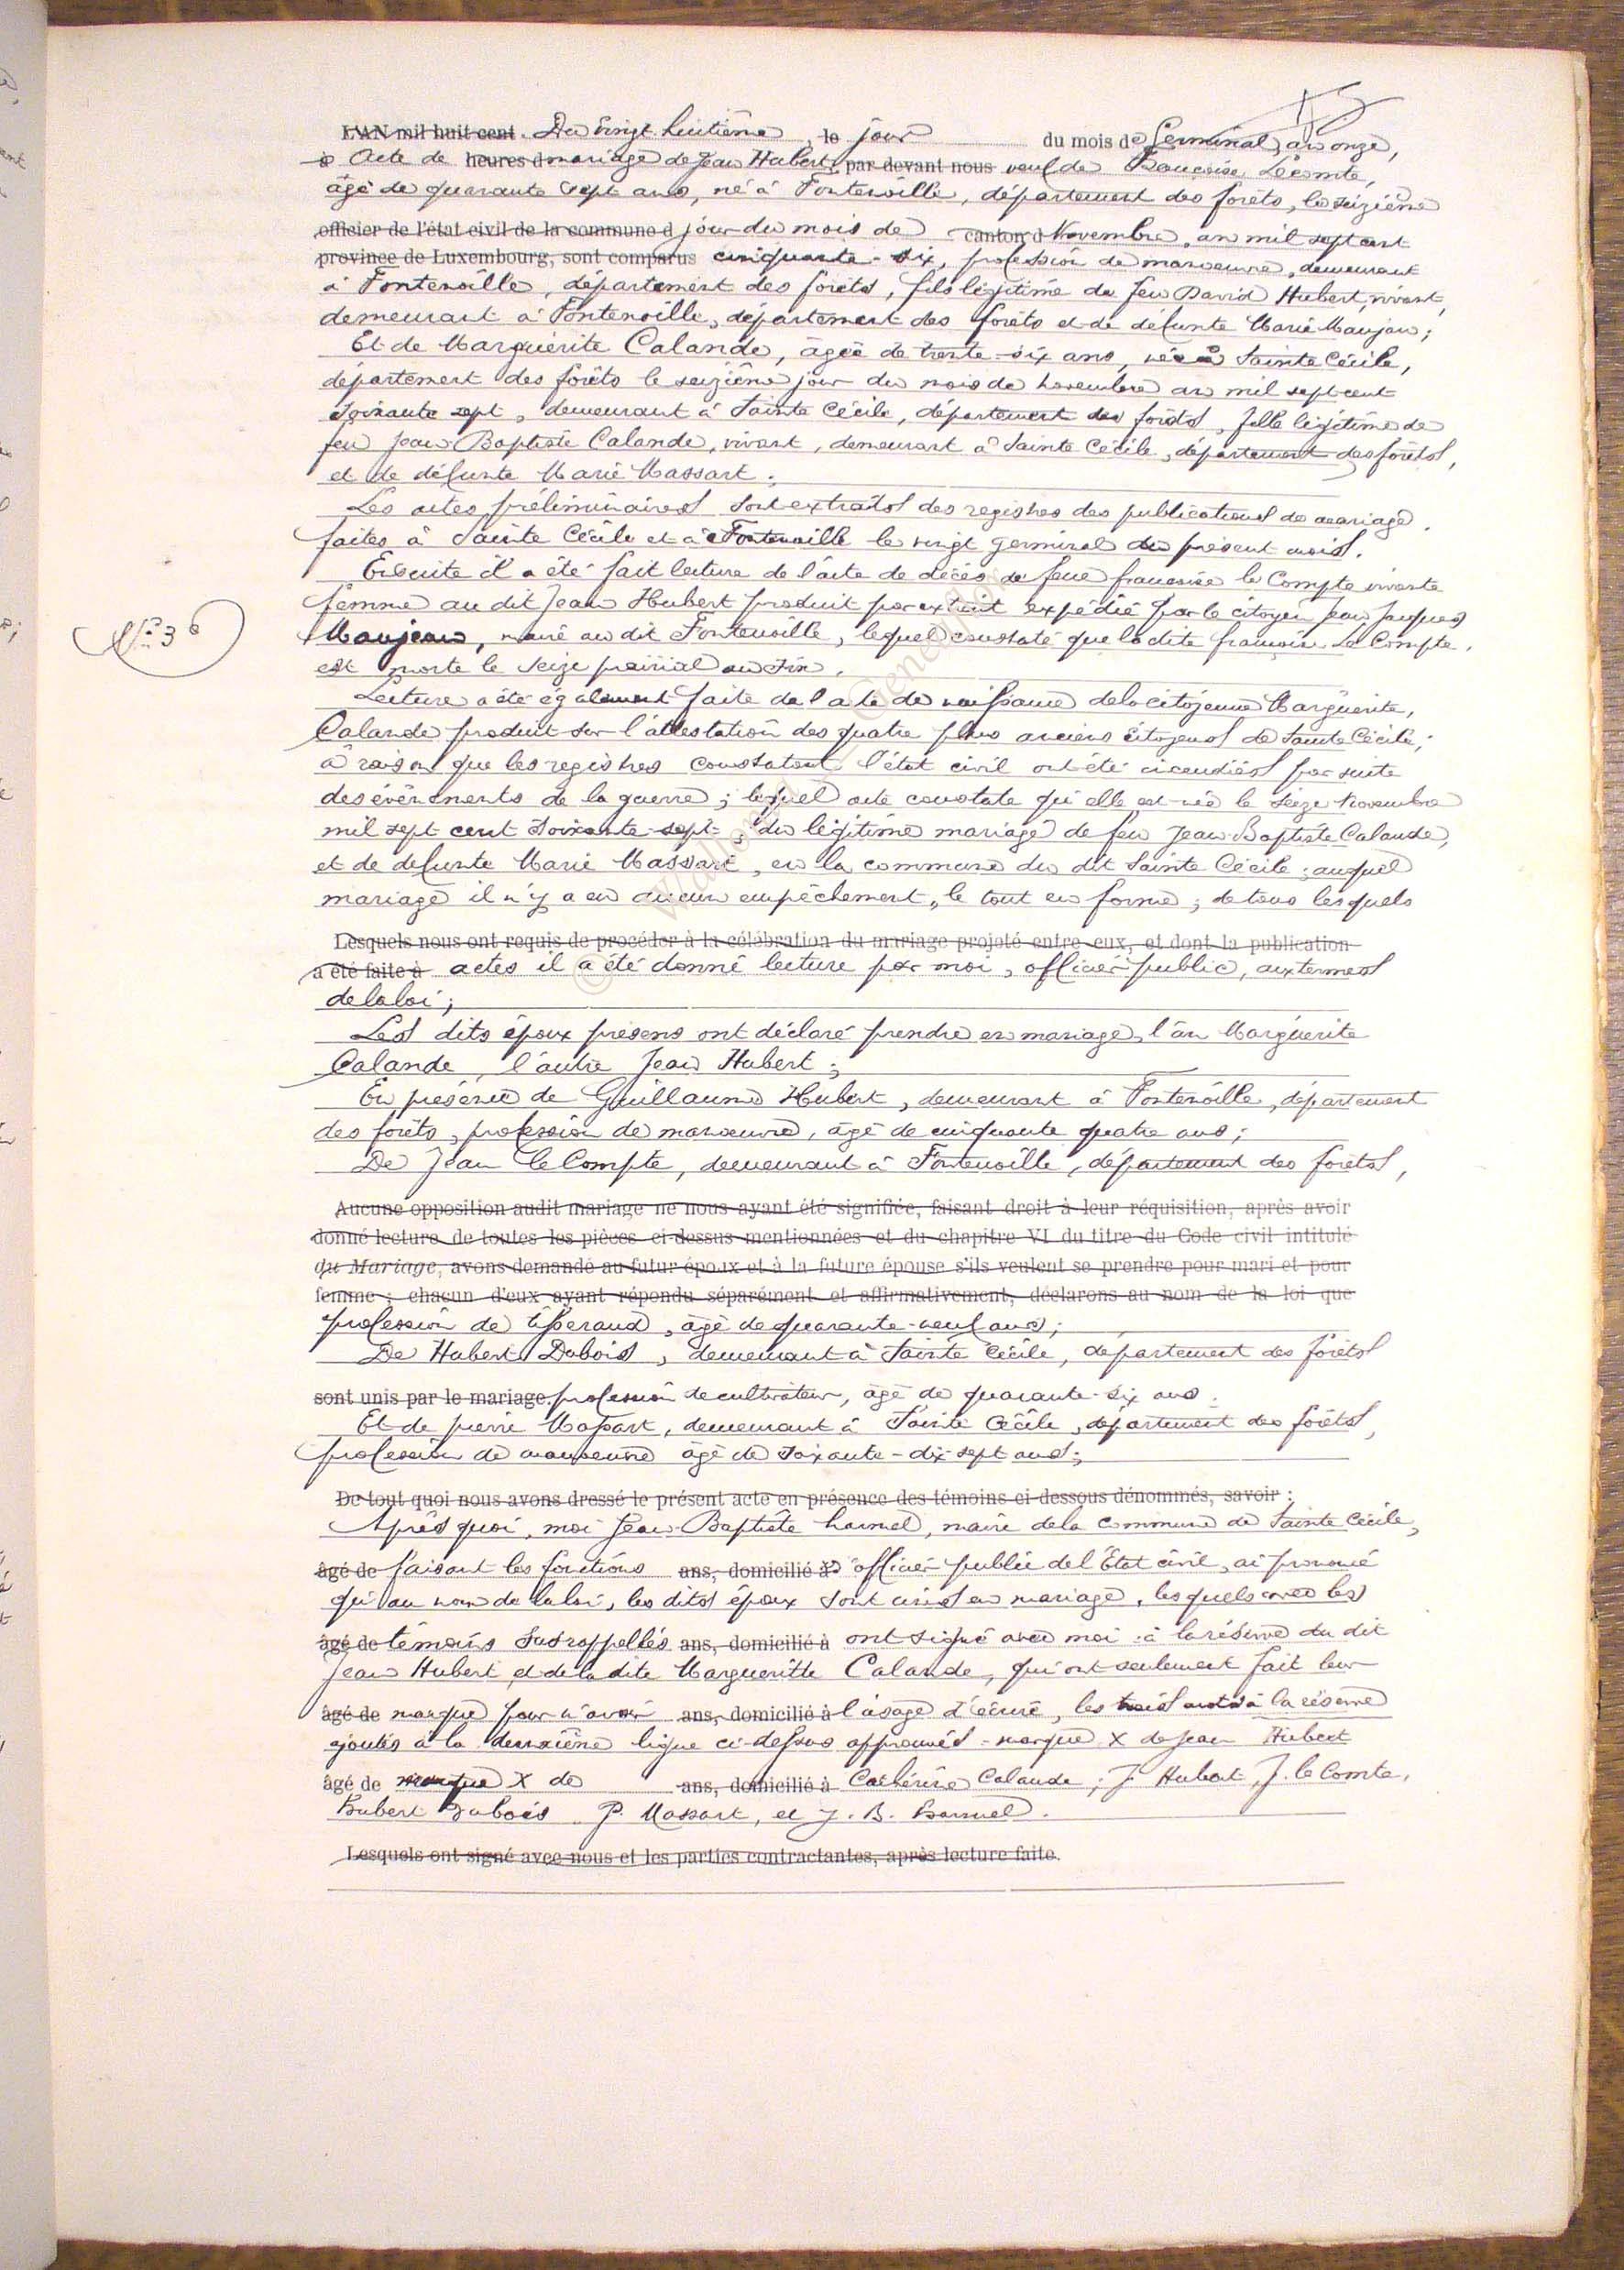 L'AN mil huit cent. Du vingt huitième, le jour du mois de Germinal, an onze,
à Acte de heures d mariage de Jean Hubert, par devant nous veuf de Françoise Lecomte,
âgé de quarante sept ans, né à Fontenoille, département des forêts, le seizième
officier de l'état civil de la commune d jour du mois de canton d Novembre, an mil sept cent
province de Luxembourg, sont comparus cinquante-six, profession de manoeuvre, demeurant
à Fontenoille, département des forêts, fils légitime de feu David Hubert, vivant,
demeurant à Fontenoille, département des forêts et de défunte Marie Maujean;
Et de Marguérite Calande, âgée de trente-six ans, née à Sainte Cécile,
département des forêts le seizième jour du mois de novembre an mil sept cent
soixante sept, demeurant à Sainte Cécile, département des forêts, fille légitime de
feu Jean Baptiste Calande, vivant, demeurant à Sainte Cécile, département des forêts,
et de défunte Marie Massart;
Les actes préliminaires sont extraits des registres des publications de mariage
faites à Sainte Cécile et à Fontenoille le vingt germinal du présent mois.
Ensuite il a été fait lecture de l'acte de décès de feue françoise le Compte vivante
femme au dit Jean Hubert produit par extrait expédié par le citoyen Jean Jacques
N° 36
Maujean, maire au dit Fontenoille, lequel constate que la dite françoise Le Compte,
est morte le seize prairial an dix.
Lecture a été également faite de l'acte de naissance de la citoyenne Marguerite,
Calande produit sur l'attestation des quatre plus anciens citoyens de Sainte Cécile;
à raison que les registres constatant l'état civil ont été incendiés par suite
des événements de la guerre; lequel acte constate qu'elle est née le seize Novembre
mil sept cent soixante-sept, du légitime mariage de feu Jean-Baptiste Calande,
et de défunte Marie Massart, en la commune du dit Sainte Cécile; auquel
mariage il n'y a eu aucun empêchement, le tout en forme; de tous lesquels
Lesquels nous ont requis de procéder à la célébration du mariage projeté entre eux, et dont la publication
a été faite à actes il a été donné lecture par moi, officier public, aux termes
de la loi;
Les dits époux présens ont déclaré prendre en mariage, l'un Marguérite
Calande, l'autre Jean Hubert;
En présence de Guillaume Hubert, demeurant à Fontenoille, département
des forêts, profession de manoeuvre, âgé de cinquante quatre ans;
De Jean le Compte, demeurant à Fontenoille, département des forêts,
Aucune opposition audit mariage ne nous ayant été signifiée, faisant droit à leur réquisition, après avoir
donné lecture de toutes les pièces ci-dessus mentionnées et du chapitre VI du titre du Code civil intitulé
du Mariage, avons demandé au futur époux et à la future épouse s'ils veulent se prendre pour mari et pour
femme; chacun d'eux ayant répondu séparément et affirmativement, déclarons au nom de la loi que
profession de tisserand, âgé de quarante-neuf ans;
De Hubert Dubois, demeurant à Sainte Cécile, département des forêts
sont unis par le mariage. profession de cultivateur, âgé de quarante-six ans.
Et de pierre Massart, demeurant à Sainte Cécile, département des forêts,
profession de manoeuvre âgé de soixante-dix-sept ans;
De tout quoi nous avons dressé le présent acte en présence des témoins ci-dessous dénommés, savoir:
Après quoi, moi Jean-Baptiste hamel, maire de la commune de Sainte Cécile,
âgé de faisant les fonctions ans, domicilié à officier public de l'Etat civil, ai prononcé
qu'au nom de la loi, les dits époux sont unis en mariage, lesquels avec les
âgé de témoins susrappellés ans, domicilié à ont signé avec moi à la réserve du dit
Jean Hubert et de la dite Margueritte Calande, qui ont seulement fait leur
âgé de marque pour n'avoir ans, domicilié à l'usage d'écrire, les trois mots à la réserve
ajoutés à la deuxième ligne ci-dessus approuvés - marque X de Jean Hubert
âgé de marque X de ans, domicilié à Cathérine Calande; J. Hubert, J. le Comte,
hubert Dubois, P. Massart, et J. B. hamel.
Lesquels ont signé avec nous et les parties contractantes, après lecture faite.